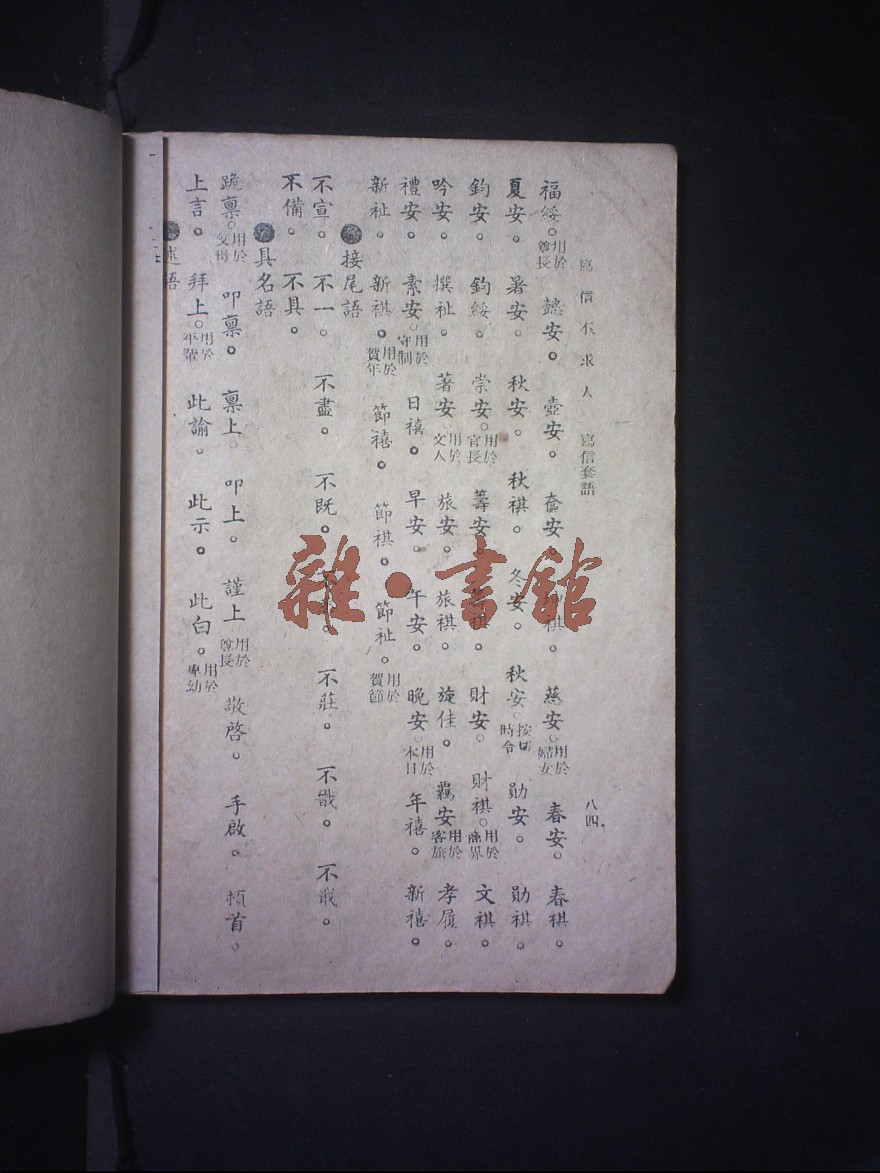 寫信不求人 寫信套語 八四
福綏。用於尊長 懿安。壼安。奩安。祺。慈安。用於婦女 春安。春祺。
夏安。暑安。秋安。秋祺。冬安。秋安。按切時令 勛安。勛祺。
鈞安。鈞綏。崇安。用於官長 籌安。祺。財安。財祺。用於商界 文祺。
吟安。撰祉。著安。用於文人 旅安。旅祺。旋佳。羈安。用於客旅 孝履。
禮安。素安。用於守制 日禧。早安。午安。晚安。用於本日 年禧。新禧。
新祉。新祺。用於賀年 節禧。節祺。節祉。用於賀節
接尾語
不宣。不一。不盡。不既。不莊。不戩。不戢。
不備。不具。
具名語
跪稟。用於父母 叩稟。稟上。叩上。謹上 用於尊長 敬啓。手啟。頓首。
上言。拜上。用於平輩 此諭。此示。此白。用於卑幼
述語
雜·書館